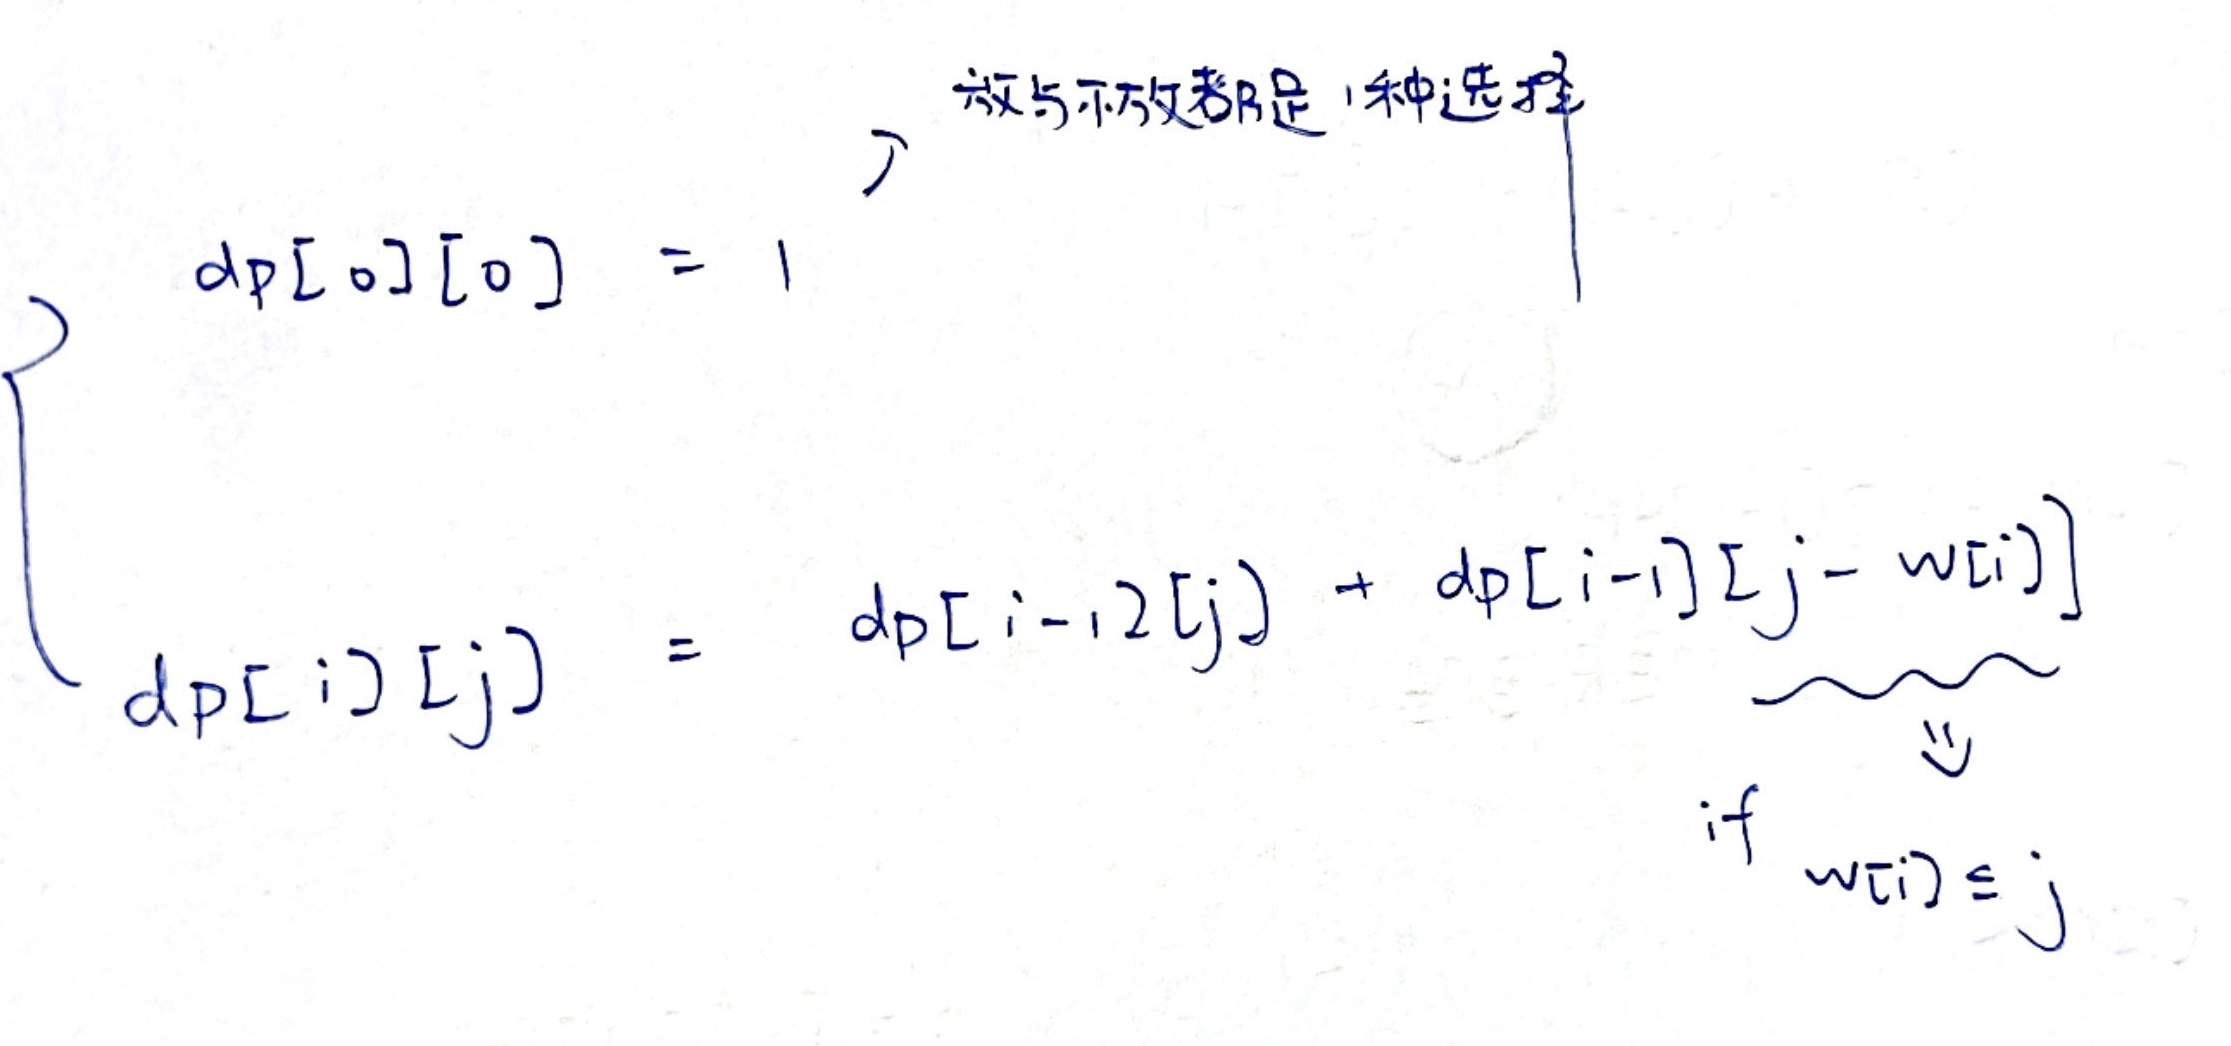 放与不放都是1种选择
dp[0][0] = 1
dp[i][j] = dp[i-1][j] + dp[i-1][j-w[i]]
if w[i] ≤ j